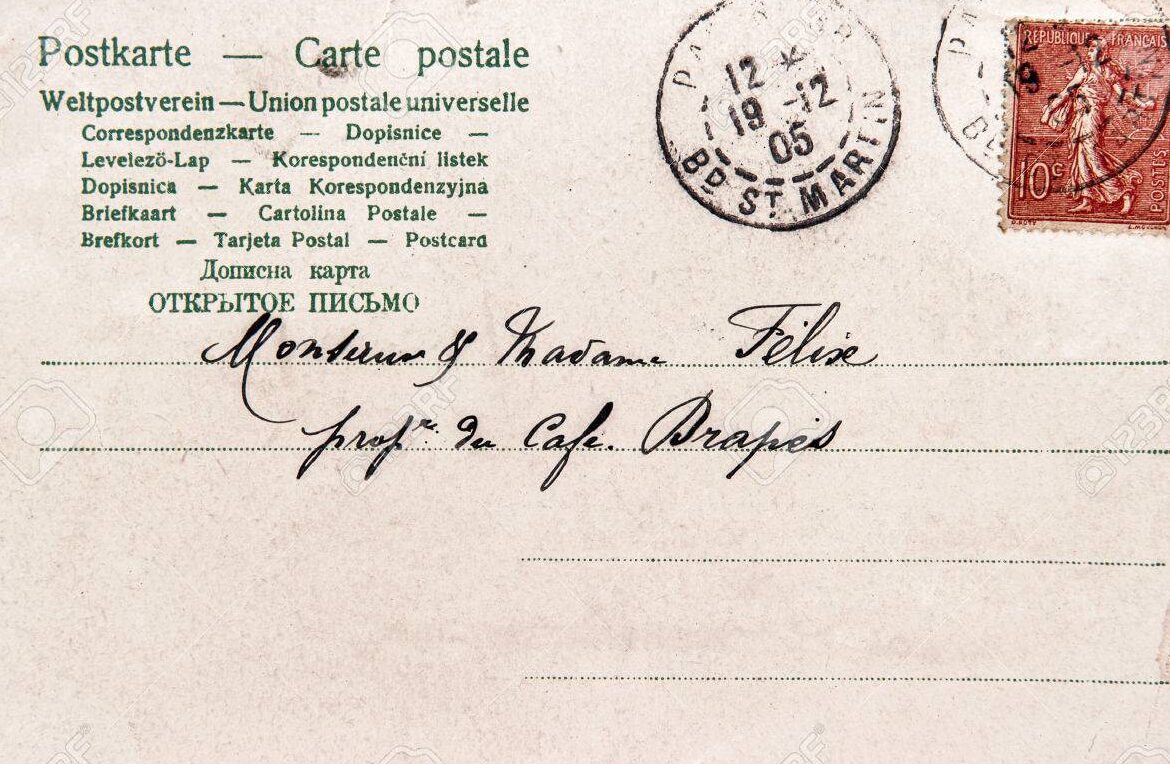 Postkarte — Carte postale
Weltpostverein — Union postale universelle
Correspondenzkarte — Dopisnice —
Levelező-Lap — Korespondenční listek
Dopisnica — Karta Korespondenzyjna
Briefkaart — Cartolina Postale —
Brefkort — Tarjeta Postal — Postcard
Дописна карта
ОТКРЫТОЕ ПИСЬМО
12
19 -12
05
BD ST MARTIN
RÉPUBLIQUE FRANÇAISE
10c
POSTES
Monsieur & Madame Félix
propr. du Café
123RF